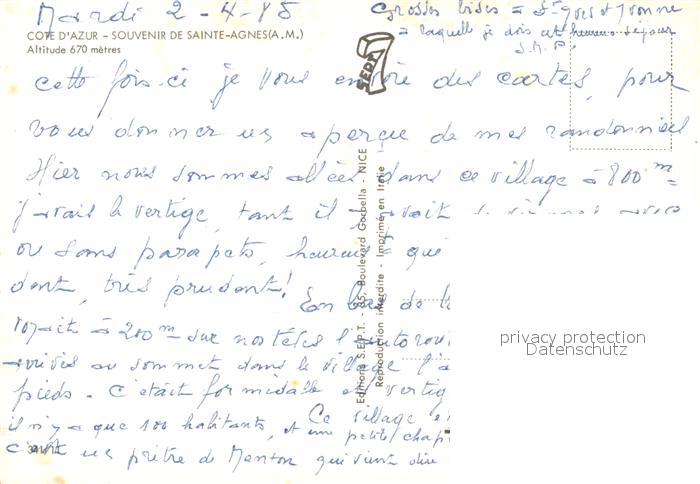 Mardi 2-4-85
Grosses bises à St Yves et Yvonne
à laquelle je dois cet heureux séjour
COTE D'AZUR – SOUVENIR DE SAINTE-AGNES (A.M.)
Altitude 670 mètres
SEPT
cette fois-ci je vous envoie des cartes, pour
vous donner un aperçu de mes randonnées
Hier nous sommes allées dans ce village à 800 m
j'avais le vertige, tant il y avait de virages avec
ou sans parapets, heureust qui
dent, très prudent!
En bas de l
voyait à 200m sur nos têtes l'autorou
arrivés au sommet dans le village l'a
pieds. C'était formidable et vertig
Ce village e
il n'y a que 100 habitants, et une petite chap
c'est un prêtre de Menton qui vient dire
Editions S.E.P.T. - 85, Boulevard Gorbella - NICE
Reproduction interdite - Imprimé en Italie
privacy protection
Datenschutz